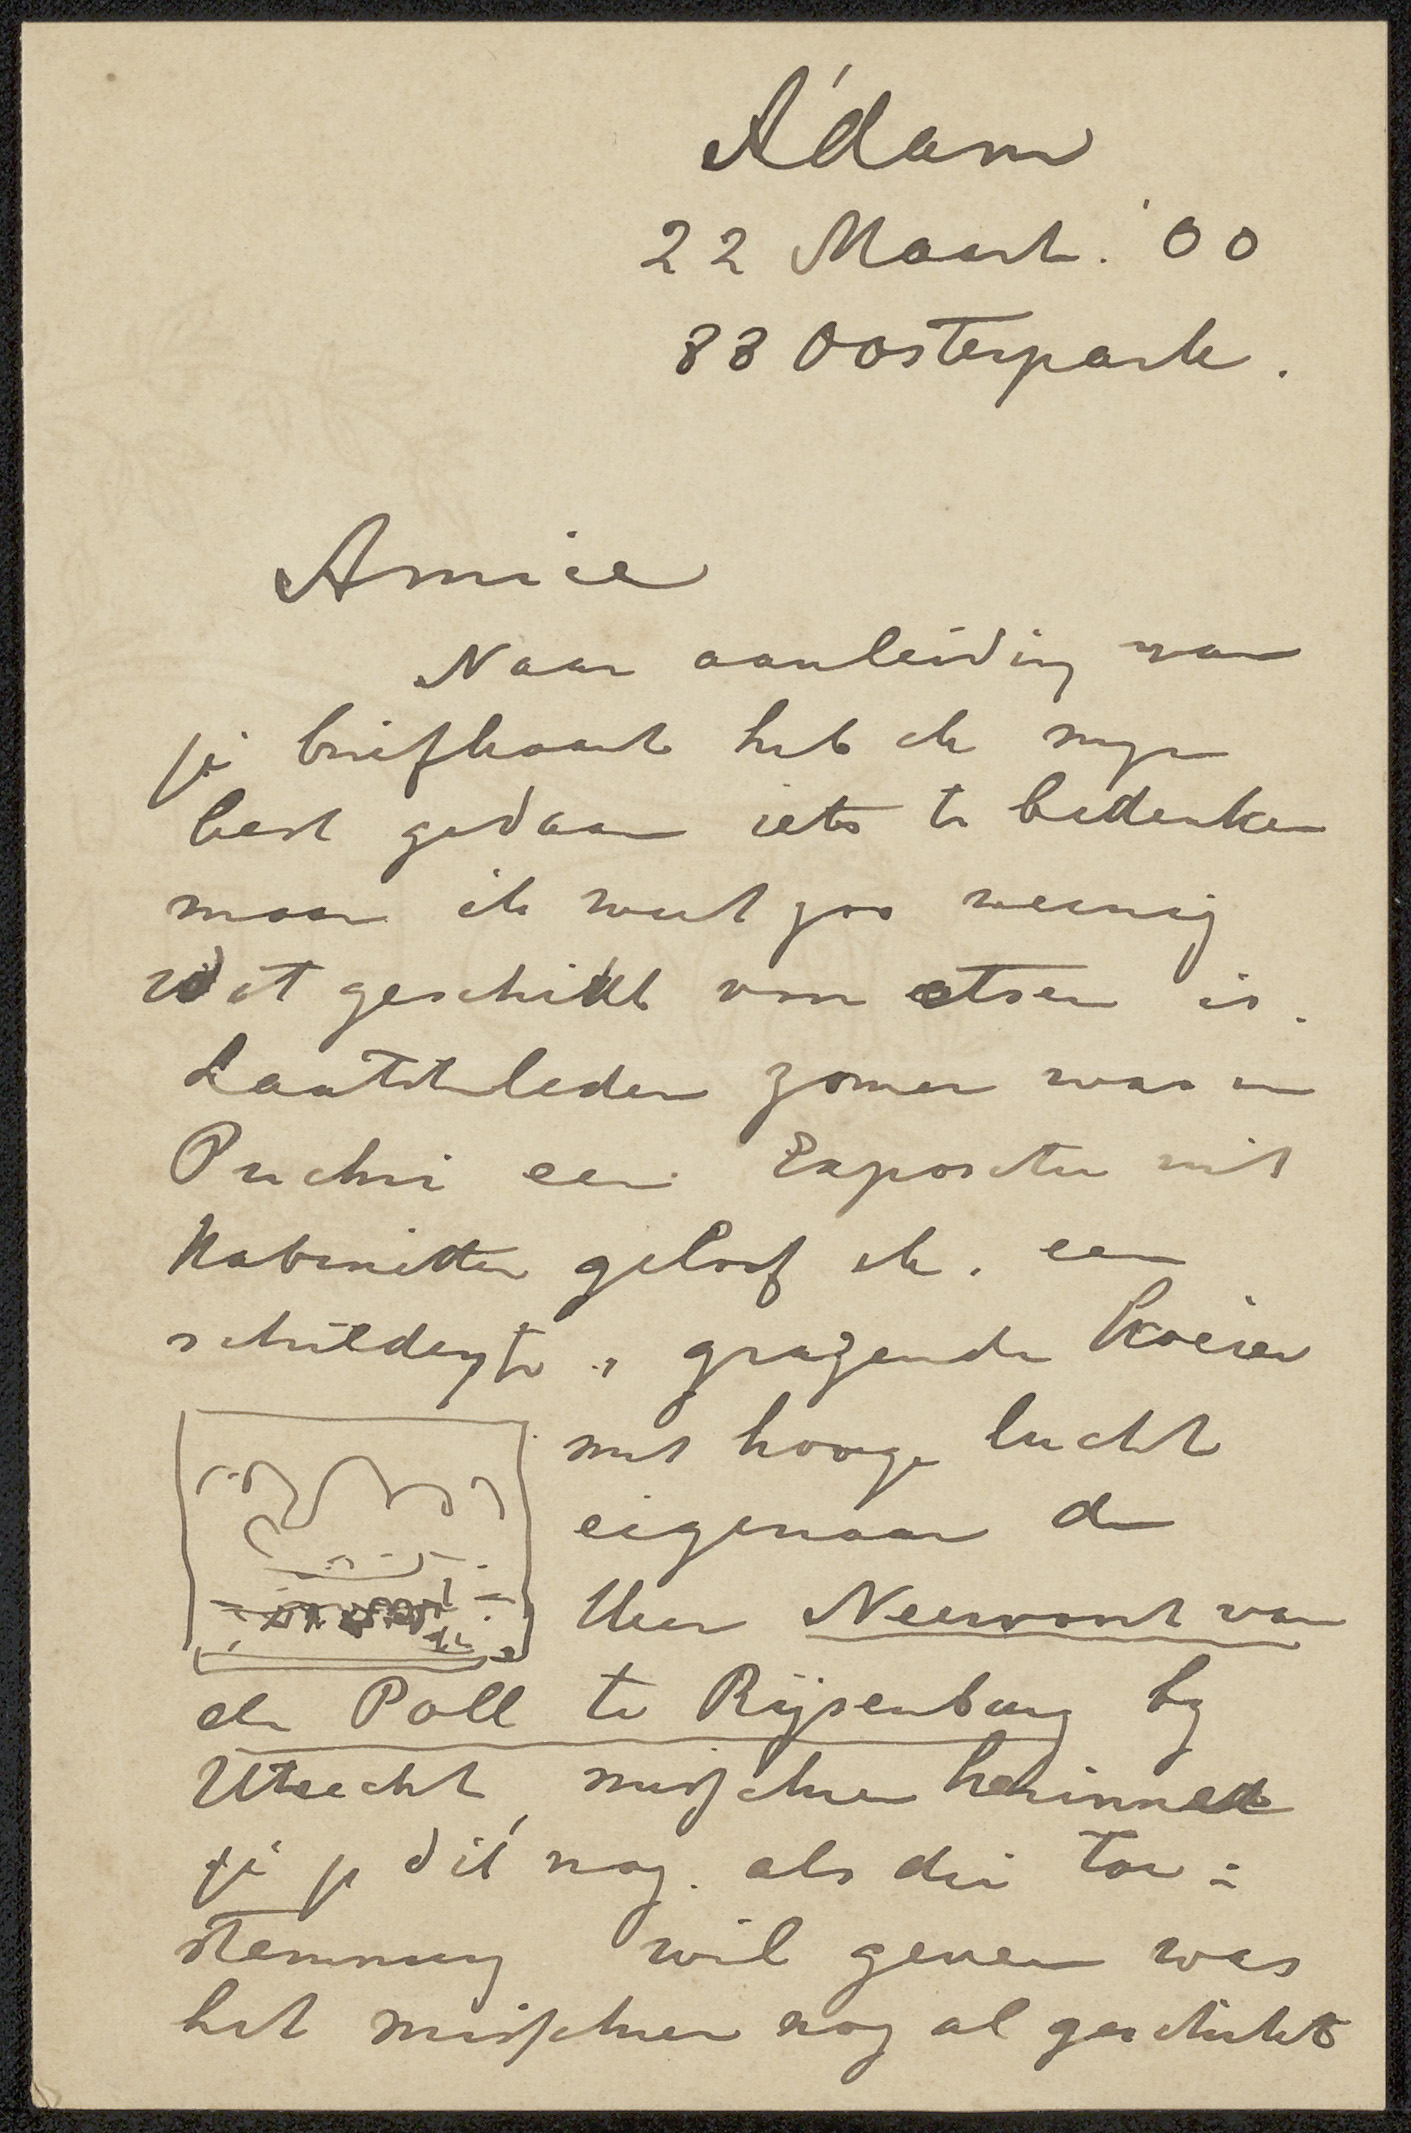 A'dam
22 Maart. '00
88 Oosterpark.
Amice
Naar aanleiding van
je briefkaart heb ik myn
best gedaan iets te bedenken
maar ik weet zoo weinig
wat geschikt voor etsen is.
Laatstleden zomer was in
Puchri een Expositie met
Kabinetten geloof ik. een
schilderytje, grazende koeien
met hooge lucht
eigenaar de
Heer Neervoort van
de Poll te Rijsenburg by
Utrecht, misschien herinnert
je je dit nog. als die toe=
stemming wil geven was
het misschien nog al geschikt